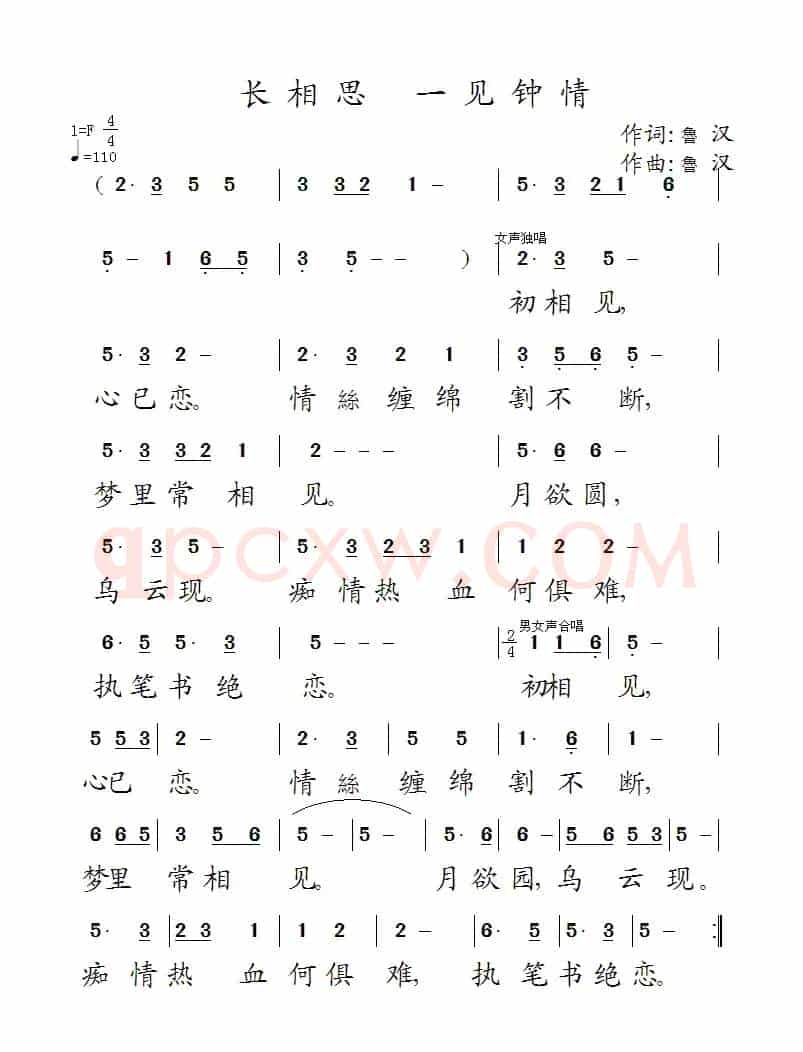 长相思 一见钟情
1=F 4/4
作词:鲁 汉
♩=110
作曲:鲁 汉
( 2· 3 5 5 | 3 3 2 1 - | 5· 3 2 1 6 |
5 - 1 6 5 | 3 5 - - ) | 2· 3 5 - |
女声独唱
初相见,
5· 3 2 - | 2· 3 2 1 | 3 5· 6 5 - |
心已恋。 情絲缠绵 割不断,
5· 3 3 2 1 | 2 - - - | 5· 6 6 - |
梦里常相 见。 月欲圆,
qpcxw.COM
5· 3 5 - | 5· 3 2 3 1 | 1 2 2 - |
乌云现。 痴情热血 何俱难,
6· 5 5· 3 | 5 - - - | 2/4 1 1 6 | 5 - |
男女声合唱
执笔书绝 恋。 初相见,
5 5 3 | 2 - | 2· 3 | 5 5 | 1· 6 | 1 - |
心已恋。 情絲缠绵割不断,
6 6 5 | 3 5 6 | 5 - | 5 - | 5· 6 | 6 - | 5 6 5 3 | 5 - |
梦里常相见。 月欲园,乌云现。
5· 3 | 2 3 1 | 1 2 | 2 - | 6· 5 | 5· 3 | 5 - :||
痴情热血何俱难,执笔书绝恋。